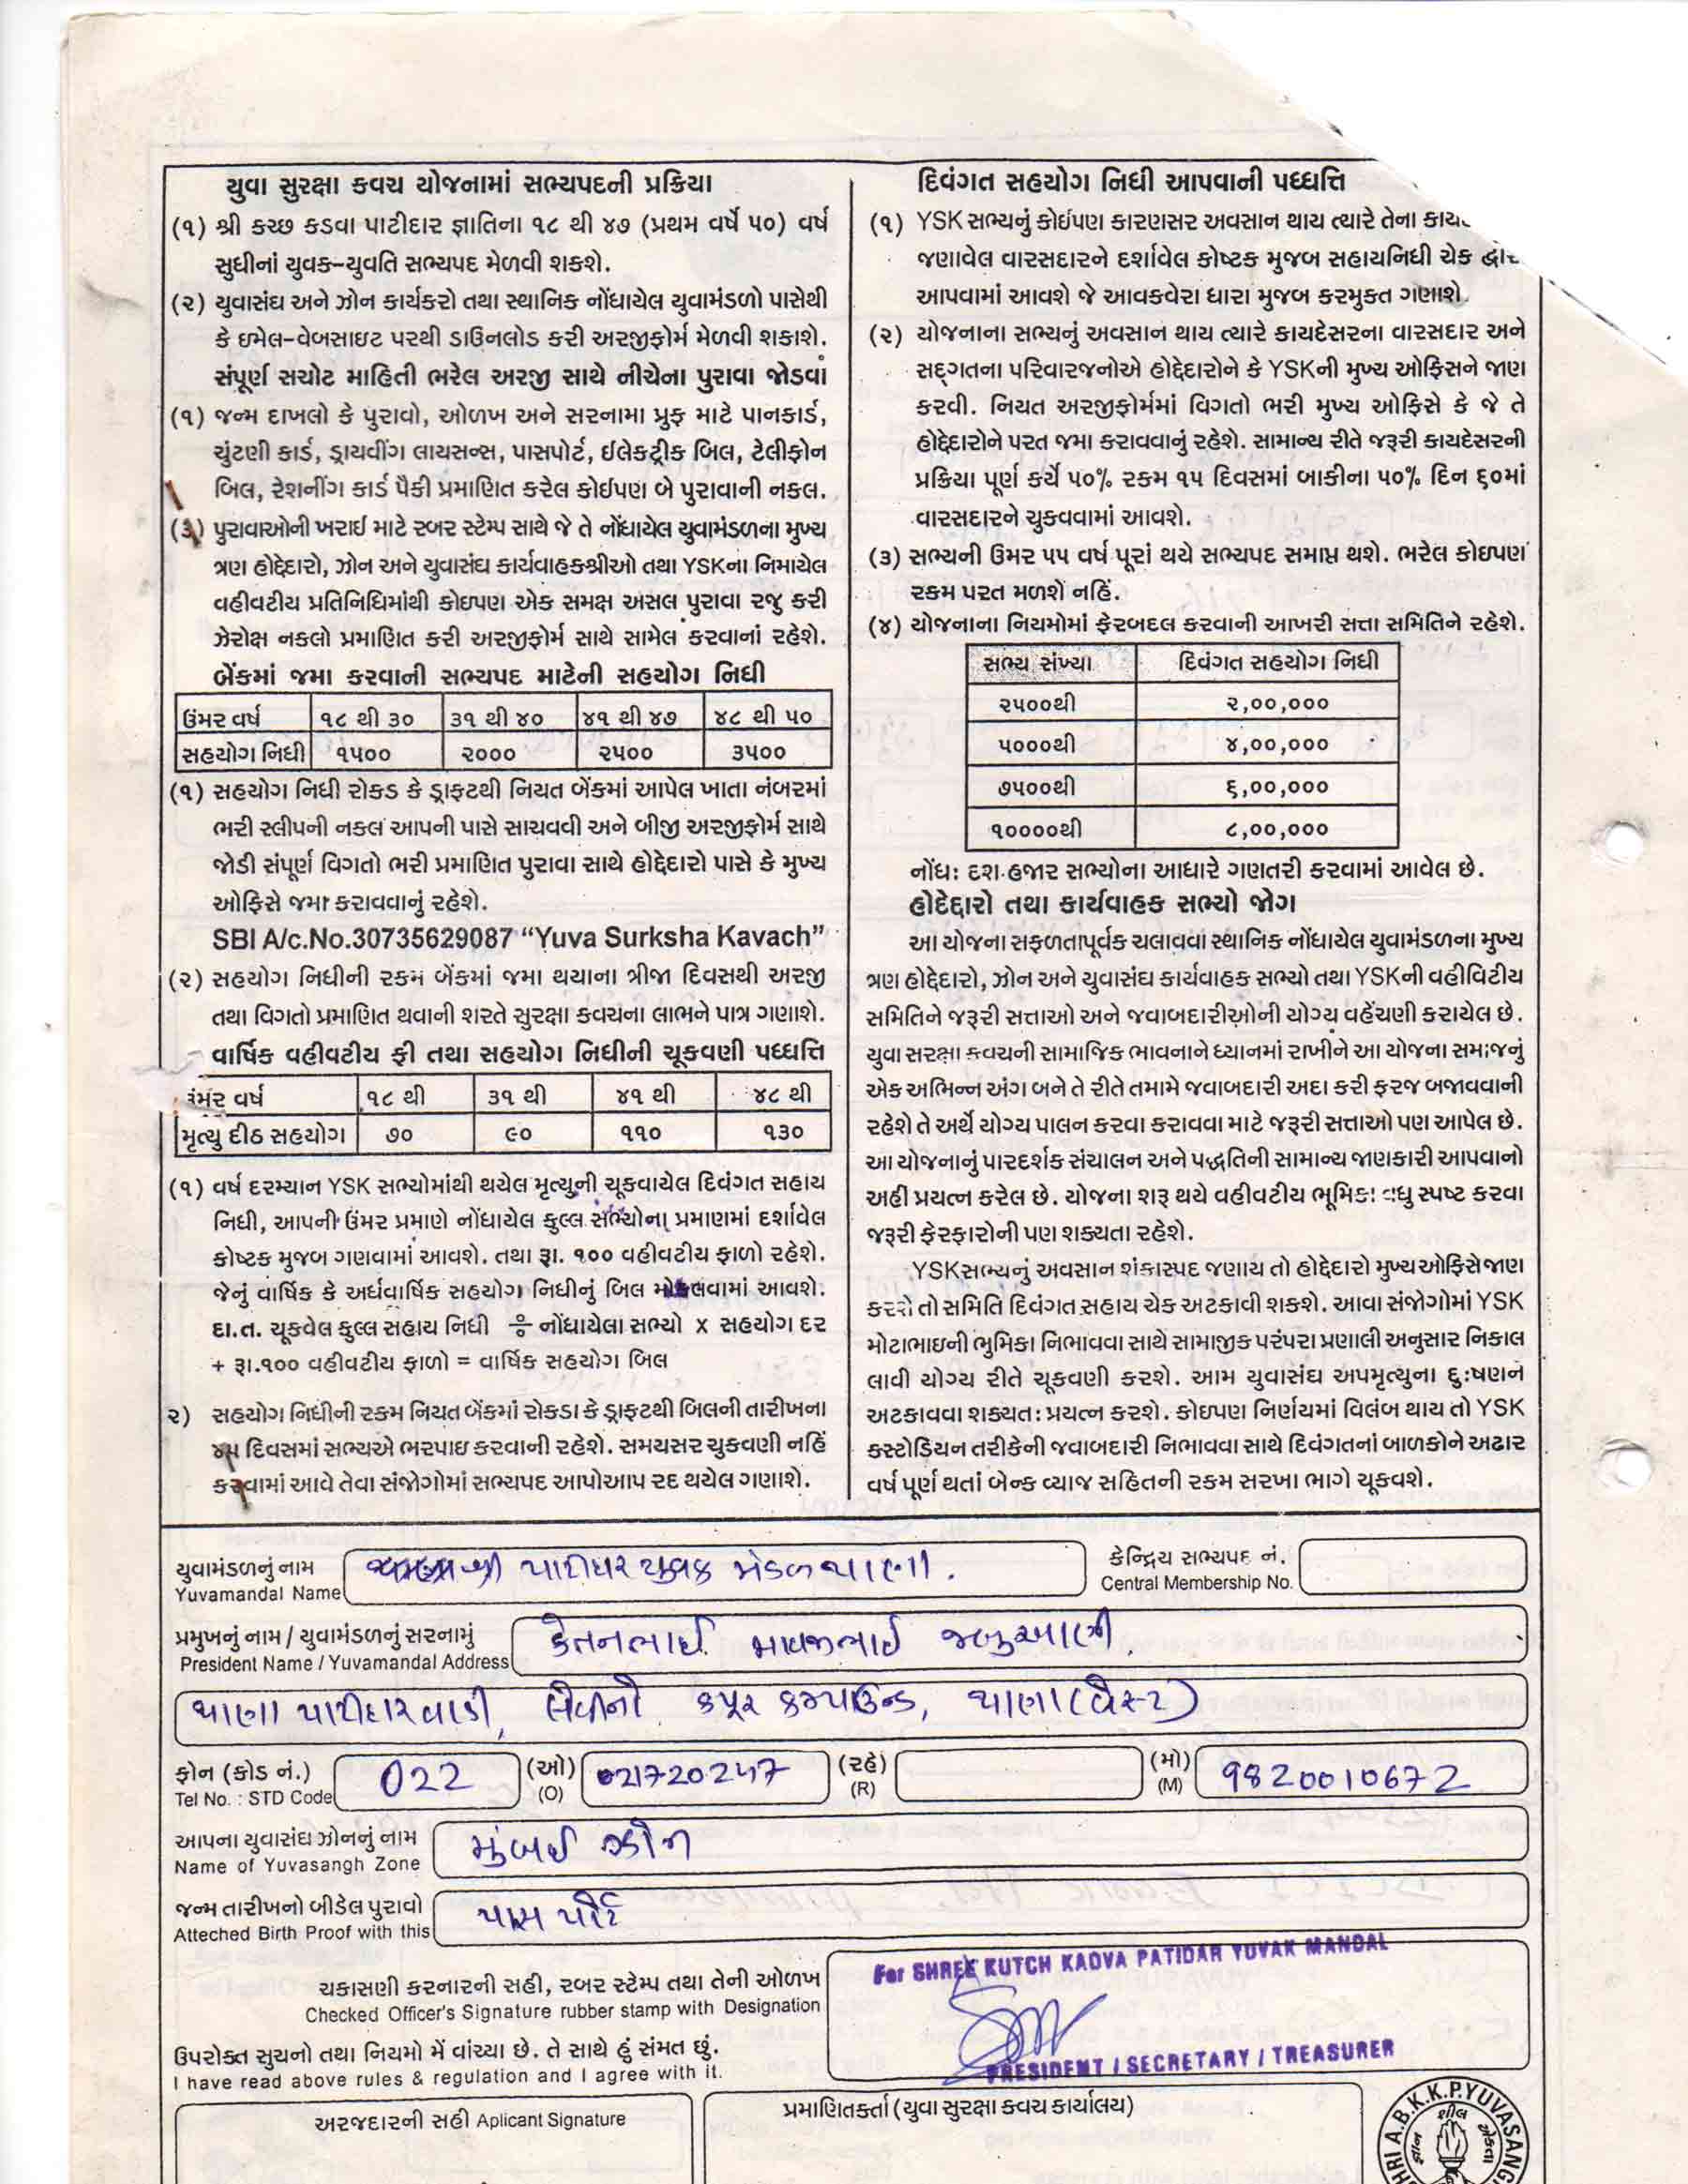 યુવા સુરક્ષા કવચ યોજનામાં સભ્યપદની પ્રક્રિયા
(૧) શ્રી કચ્છ કડવા પાટીદાર જ્ઞાતિના ૧૮ થી ૪૭ (પ્રથમ વર્ષે ૫૦) વર્ષ
સુધીનાં યુવક–યુવતિ સભ્યપદ મેળવી શકશે.
(૨) યુવાસંઘ અને ઝોન કાર્યકરો તથા સ્થાનિક નોંધાયેલ યુવામંડળો પાસેથી
કે ઇમેલ–વેબસાઇટ પરથી ડાઉનલોડ કરી અરજીફોર્મ મેળવી શકાશે.
સંપૂર્ણ સચોટ માહિતી ભરેલ અરજી સાથે નીચેના પુરાવા જોડવાં
(૧) જન્મ દાખલો કે પુરાવો, ઓળખ અને સરનામા પ્રુફ માટે પાનકાર્ડ,
ચુંટણી કાર્ડ, ડ્રાયવીંગ લાયસન્સ, પાસપોર્ટ, ઈલેક્ટ્રીક બિલ, ટેલીફોન
બિલ, રેશનીંગ કાર્ડ પૈકી પ્રમાણિત કરેલ કોઈપણ બે પુરાવાની નકલ.
(૩) પુરાવાઓની ખરાઈ માટે રબર સ્ટેમ્પ સાથે જે તે નોંધાયેલ યુવામંડળના મુખ્ય
ત્રણ હોદ્દેદારો, ઝોન અને યુવાસંઘ કાર્યવાહકશ્રીઓ તથા YSKના નિમાયેલ
વહીવટીય પ્રતિનિધિમાંથી કોઇપણ એક સમક્ષ અસલ પુરાવા રજુ કરી
ઝેરોક્ષ નકલો પ્રમાણિત કરી અરજીફોર્મ સાથે સામેલ કરવાનાં રહેશે.
બેંકમાં જમા કરવાની સભ્યપદ માટેની સહયોગ નિધી
ઉંમર વર્ષ ૧૮ થી ૩૦ ૩૧ થી ૪૦ ૪૧ થી ૪૭ ૪૮ થી ૫૦
સહયોગ નિધી ૧૫૦૦ ૨૦૦૦ ૨૫૦૦ ૩૫૦૦
(૧) સહયોગ નિધી રોકડ કે ડ્રાફટથી નિયત બેંકમાં આપેલ ખાતા નંબરમાં
ભરી સ્લીપની નકલ આપની પાસે સાચવવી અને બીજી અરજીફોર્મ સાથે
જોડી સંપૂર્ણ વિગતો ભરી પ્રમાણિત પુરાવા સાથે હોદ્દેદારો પાસે કે મુખ્ય
ઓફિસે જમા કરાવવાનું રહેશે.
SBI A/c.No.30735629087 “Yuva Surksha Kavach”
(૨) સહયોગ નિધીની રકમ બેંકમાં જમા થયાના ત્રીજા દિવસથી અરજી
તથા વિગતો પ્રમાણિત થવાની શરતે સુરક્ષા કવચના લાભને પાત્ર ગણાશે.
વાર્ષિક વહીવટીય ફી તથા સહયોગ નિધીની ચૂકવણી પધ્ધત્તિ
ઉંમર વર્ષ ૧૮ થી ૩૧ થી ૪૧ થી ૪૮ થી
મૃત્યુ દીઠ સહયોગ ૭૦ ૯૦ ૧૧૦ ૧૩૦
(૧) વર્ષ દરમ્યાન YSK સભ્યોમાંથી થયેલ મૃત્યુની ચૂકવાયેલ દિવંગત સહાય
નિધી, આપની ઉંમર પ્રમાણે નોંધાયેલ કુલ્લ સભ્યોના પ્રમાણમાં દર્શાવેલ
કોષ્ટક મુજબ ગણવામાં આવશે. તથા રૂા. ૧૦૦ વહીવટીય ફાળો રહેશે.
જેનું વાર્ષિક કે અર્ધવાર્ષિક સહયોગ નિધીનું બિલ મોકલવામાં આવશે.
દા.ત. ચૂકવેલ કુલ્લ સહાય નિધી ÷ નોંધાયેલા સભ્યો x સહયોગ દર
+ રૂા.૧૦૦ વહીવટીય ફાળો = વાર્ષિક સહયોગ બિલ
૨) સહયોગ નિધીની રકમ નિયત બેંકમાં રોકડા કે ડ્રાફટથી બિલની તારીખના
૪૫ દિવસમાં સભ્યએ ભરપાઇ કરવાની રહેશે. સમયસર ચુકવણી નહિં
કરવામાં આવે તેવા સંજોગોમાં સભ્યપદ આપોઆપ રદ થયેલ ગણાશે.
દિવંગત સહયોગ નિધી આપવાની પધ્ધત્તિ
(૧) YSK સભ્યનું કોઈપણ કારણસર અવસાન થાય ત્યારે તેના
જણાવેલ વારસદારને દર્શાવેલ કોષ્ટક મુજબ સહાયનિધી ચેક
આપવામાં આવશે જે આવકવેરા ધારા મુજબ કરમુક્ત ગણાશે.
(૨) યોજનાના સભ્યનું અવસાન થાય ત્યારે કાયદેસરના વારસદાર અને
સદ્‌ગતના પરિવારજનોએ હોદ્દેદારોને કે YSKની મુખ્ય ઓફિસને જાણ
કરવી. નિયત અરજીફોર્મમાં વિગતો ભરી મુખ્ય ઓફિસે કે જે તે
હોદ્દેદારોને પરત જમા કરાવવાનું રહેશે. સામાન્ય રીતે જરૂરી કાયદેસરની
પ્રક્રિયા પૂર્ણ કર્યે ૫૦% રકમ ૧૫ દિવસમાં બાકીના ૫૦% દિન ૬૦માં
વારસદારને ચુકવવામાં આવશે.
(૩) સભ્યની ઉંમર ૫૫ વર્ષ પૂરાં થયે સભ્યપદ સમાપ્ત થશે. ભરેલ કોઇપણ
રકમ પરત મળશે નહિં.
(૪) યોજનાના નિયમોમાં ફેરબદલ કરવાની આખરી સત્તા સમિતિને રહેશે.
સભ્ય સંખ્યા દિવંગત સહયોગ નિધી
૨૫૦૦થી ૨,૦૦,૦૦૦
૫૦૦૦થી ૪,૦૦,૦૦૦
૭૫૦૦થી ૬,૦૦,૦૦૦
૧૦૦૦૦થી ૮,૦૦,૦૦૦
નોંધઃ દશ હજાર સભ્યોના આધારે ગણતરી કરવામાં આવેલ છે.
હોદેદ્દારો તથા કાર્યવાહક સભ્યો જોગ
આ યોજના સફળતાપૂર્વક ચલાવવા સ્થાનિક નોંધાયેલ યુવામંડળના મુખ્ય
ત્રણ હોદ્દેદારો, ઝોન અને યુવાસંઘ કાર્યવાહક સભ્યો તથા YSKની વહીવિટીય
સમિતિને જરૂરી સત્તાઓ અને જવાબદારીઓની યોગ્ય વહેંચણી કરાયેલ છે.
યુવા સરક્ષા કવચની સામાજિક ભાવનાને ધ્યાનમાં રાખીને આ યોજના સમાજનું
એક અભિન્ન અંગ બને તે રીતે તમામે જવાબદારી અદા કરી ફરજ બજાવવાની
રહેશે તે અર્થે યોગ્ય પાલન કરવા કરાવવા માટે જરૂરી સત્તાઓ પણ આપેલ છે.
આ યોજનાનું પારદર્શક સંચાલન અને પદ્ધતિની સામાન્ય જાણકારી આપવાનો
અહીં પ્રયત્ન કરેલ છે. યોજના શરૂ થયે વહીવટીય ભૂમિકા વધુ સ્પષ્ટ કરવા
જરૂરી ફેરફારોની પણ શક્યતા રહેશે.
YSKસભ્યનું અવસાન શંકાસ્પદ જણાય તો હોદ્દેદારો મુખ્ય ઓફિસે જાણ
કરશે તો સમિતિ દિવંગત સહાય ચેક અટકાવી શકશે. આવા સંજોગોમાં YSK
મોટાભાઇની ભુમિકા નિભાવવા સાથે સામાજીક પરંપરા પ્રણાલી અનુસાર નિકાલ
લાવી યોગ્ય રીતે ચૂકવણી કરશે. આમ યુવાસંઘ અપમૃત્યુના દુઃષણન
અટકાવવા શક્યતઃ પ્રયત્ન કરશે. કોઇપણ નિર્ણયમાં વિલંબ થાય તો YSK
કસ્ટોડિયન તરીકેની જવાબદારી નિભાવવા સાથે દિવંગતનાં બાળકોને અઢાર
વર્ષ પૂર્ણ થતાં બેન્ક વ્યાજ સહિતની રકમ સરખા ભાગે ચૂકવશે.
યુવામંડળનું નામ શ્રી પાટીદાર યુવક મંડળ થાણા.
Yuvamandal Name
કેન્દ્રિય સભ્યપદ નં.
Central Membership No.
પ્રમુખનું નામ / યુવામંડળનું સરનામું કેતનભાઈ માવજીભાઈ જબુઆણી
President Name / Yuvamandal Address
થાણા પાટીદાર વાડી, કપૂર કમ્પાઉન્ડ, થાણા (વેસ્ટ)
ફોન (કોડ નં.) 022 (ઓ) 021720247 (રહે) (મો) 9820010672
Tel No. : STD Code (O) (R) (M)
આપના યુવાસંઘ ઝોનનું નામ મુંબઈ ઝોન
Name of Yuvasangh Zone
જન્મ તારીખનો બીડેલ પુરાવો પાસ પોર્ટ
Atteched Birth Proof with this
For SHREE KUTCH KADVA PATIDAR YUVAK MANDAL
ચકાસણી કરનારની સહી, રબર સ્ટેમ્પ તથા તેની ઓળખ
Checked Officer's Signature rubber stamp with Designation
PRESIDENT / SECRETARY / TREASURER
ઉપરોક્ત સુચનો તથા નિયમો મેં વાંચ્યા છે. તે સાથે હું સંમત છું.
I have read above rules & regulation and I agree with it.
અરજદારની સહી Aplicant Signature
પ્રમાણિતકર્તા (યુવા સુરક્ષા કવચ કાર્યાલય)
SHRI A.B.K.K.P.YUVASANGH
શીલ
જ્ઞાન
એકતા